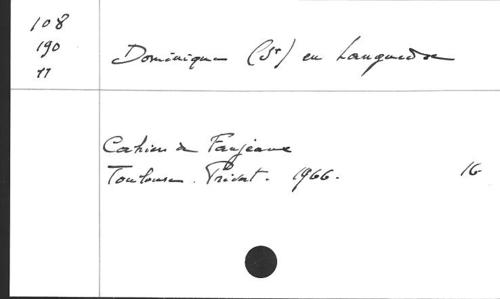 108
190
11
Dominique (St) en Languedoc
Cahiers de Fanjeaux
Toulouse. Privat. 1966. 16